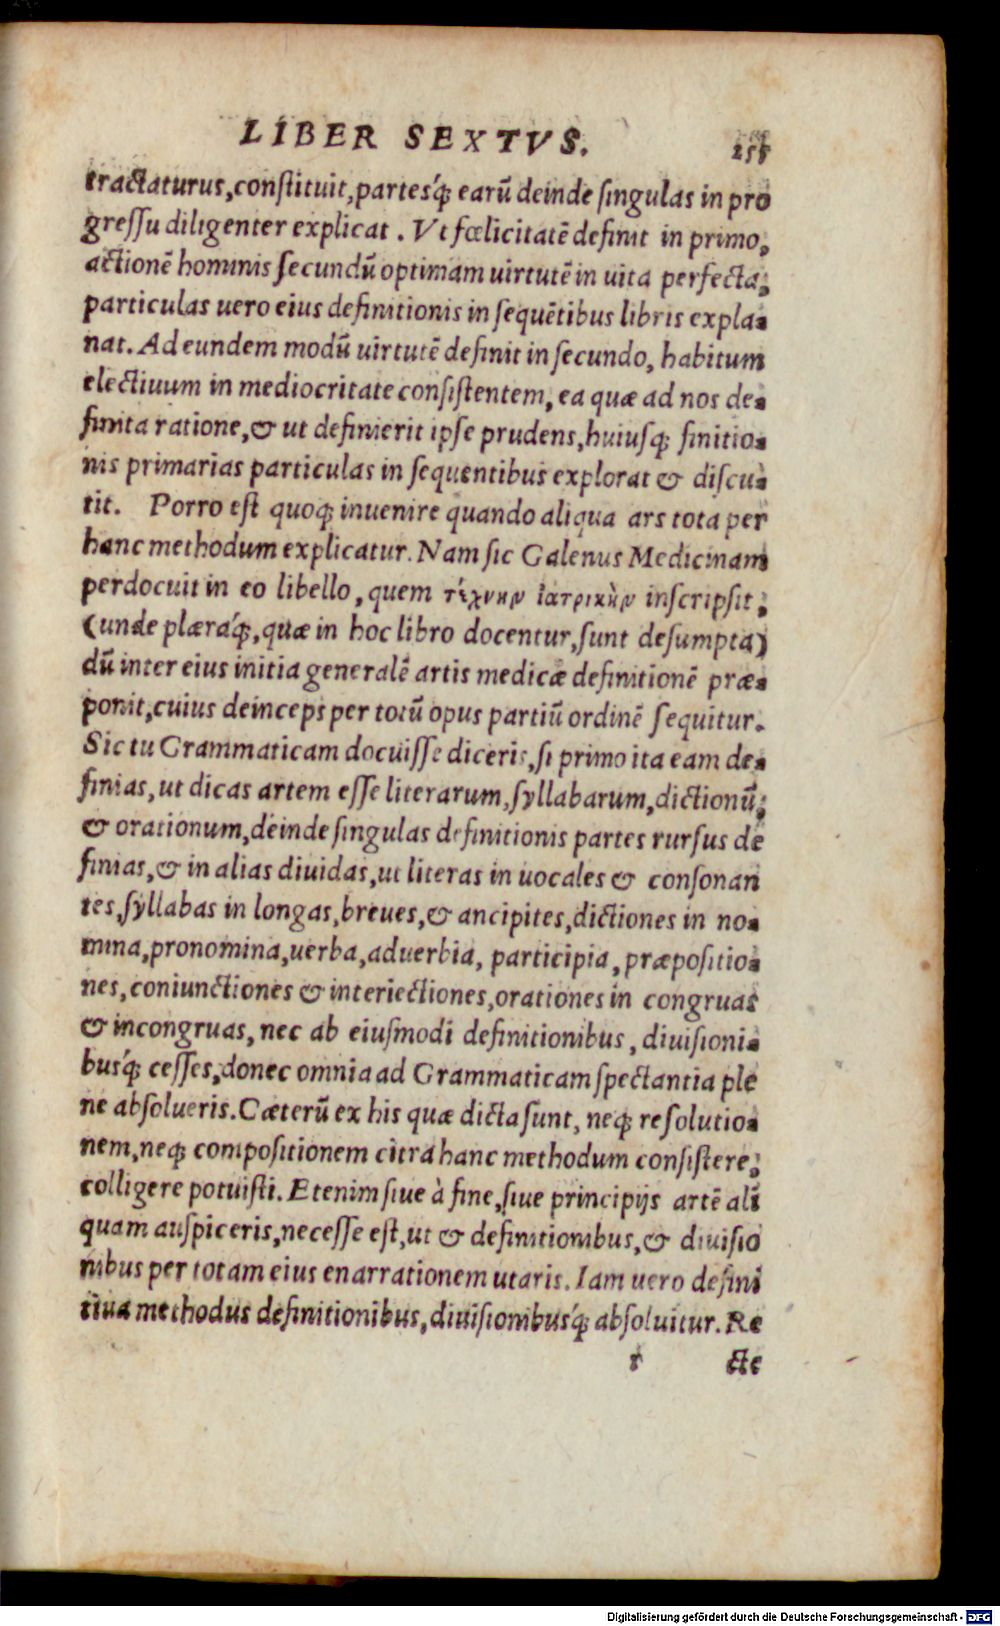 LIBER SEXTVS. 255
tractaturus, constituit, partesq́; earū deinde singulas in pro
gressu diligenter explicat. Vt fœlicitatē definit in primo,
actionē hominis secundū optimam uirtutē in uita perfecta,
particulas uero eius definitionis in sequētibus libris expla-
nat. Ad eundem modū uirtutē definit in secundo, habitum
electiuum in mediocritate consistentem, ea quæ ad nos de-
finita ratione, & ut definierit ipse prudens, huiusq; finitio-
nis primarias particulas in sequentibus explorat & discu-
tit. Porro est quoq; inuenire quando aliqua ars tota per
hanc methodum explicatur. Nam sic Galenus Medicinam
perdocuit in eo libello, quem τέχνην ἰατρικὴν inscripsit,
(unde plæraq́;, quæ in hoc libro docentur, sunt desumpta)
dū inter eius initia generalē artis medicæ definitionē præ-
ponit, cuius deinceps per totū opus partiū ordinē sequitur.
Sic tu Grammaticam docuisse diceris, si primo ita eam de-
finias, ut dicas artem esse literarum, syllabarum, dictionū,
& orationum, deinde singulas definitionis partes rursus de
finias, & in alias diuidas, ut literas in uocales & consonan
tes, syllabas in longas, breues, & ancipites, dictiones in no-
mina, pronomina, uerba, aduerbia, participia, præpositio-
nes, coniunctiones & interiectiones, orationes in congruas
& incongruas, nec ab eiusmodi definitionibus, diuisioni-
busq́; cesses, donec omnia ad Grammaticam spectantia ple
ne absolueris. Cæterū ex his quæ dicta sunt, neq; resolutio-
nem, neq; compositionem citra hanc methodum consistere,
colligere potuisti. Etenim siue à fine, siue principijs artē ali
quam auspiceris, necesse est, ut & definitionibus, & diuisio
nibus per totam eius enarrationem utaris. Iam uero defini
tiua methodus definitionibus, diuisionibusq́; absoluitur. Re
r cte
Digitalisierung gefördert durch die Deutsche Forschungsgemeinschaft - DFG